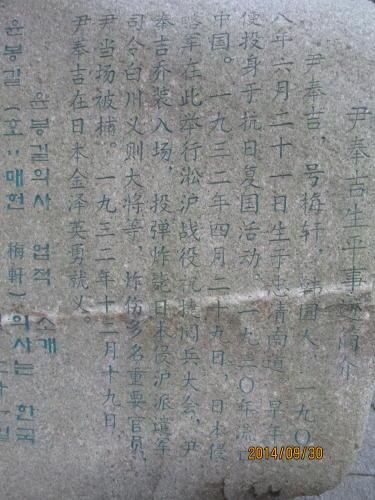 尹奉吉生平事迹简介
尹奉吉,号梅轩,韩国人,一九〇
八年六月二十一日生于忠清南道,早年
便投身于抗日复国活动。一九三〇年流亡
中国。一九三二年四月二十九日,日本侵
略军在此举行淞沪战役祝捷阅兵大会,尹
奉吉乔装入场,投弹炸毙日本侵沪派遣军
司令白川义则大将等,炸伤多名重要官员,
尹当场被捕。一九三二年十二月十九日,
尹奉吉在日本金泽英勇就义。
윤봉길의사 업적 소개
윤봉길(호:매헌 梅軒)의사는 한국
2014/09/30